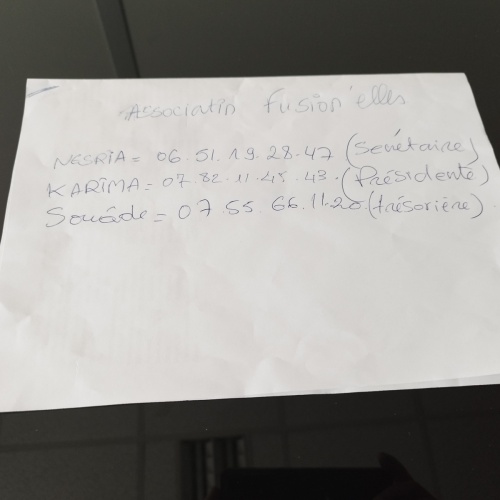 Associatin Fusion'elles
NESRIA = 06.51.19.28.47 (Senétaire)
KARIMA = 07.82.11.45.43. (Présidente)
Souáde = 07.55.66.11.20 (trésorière)